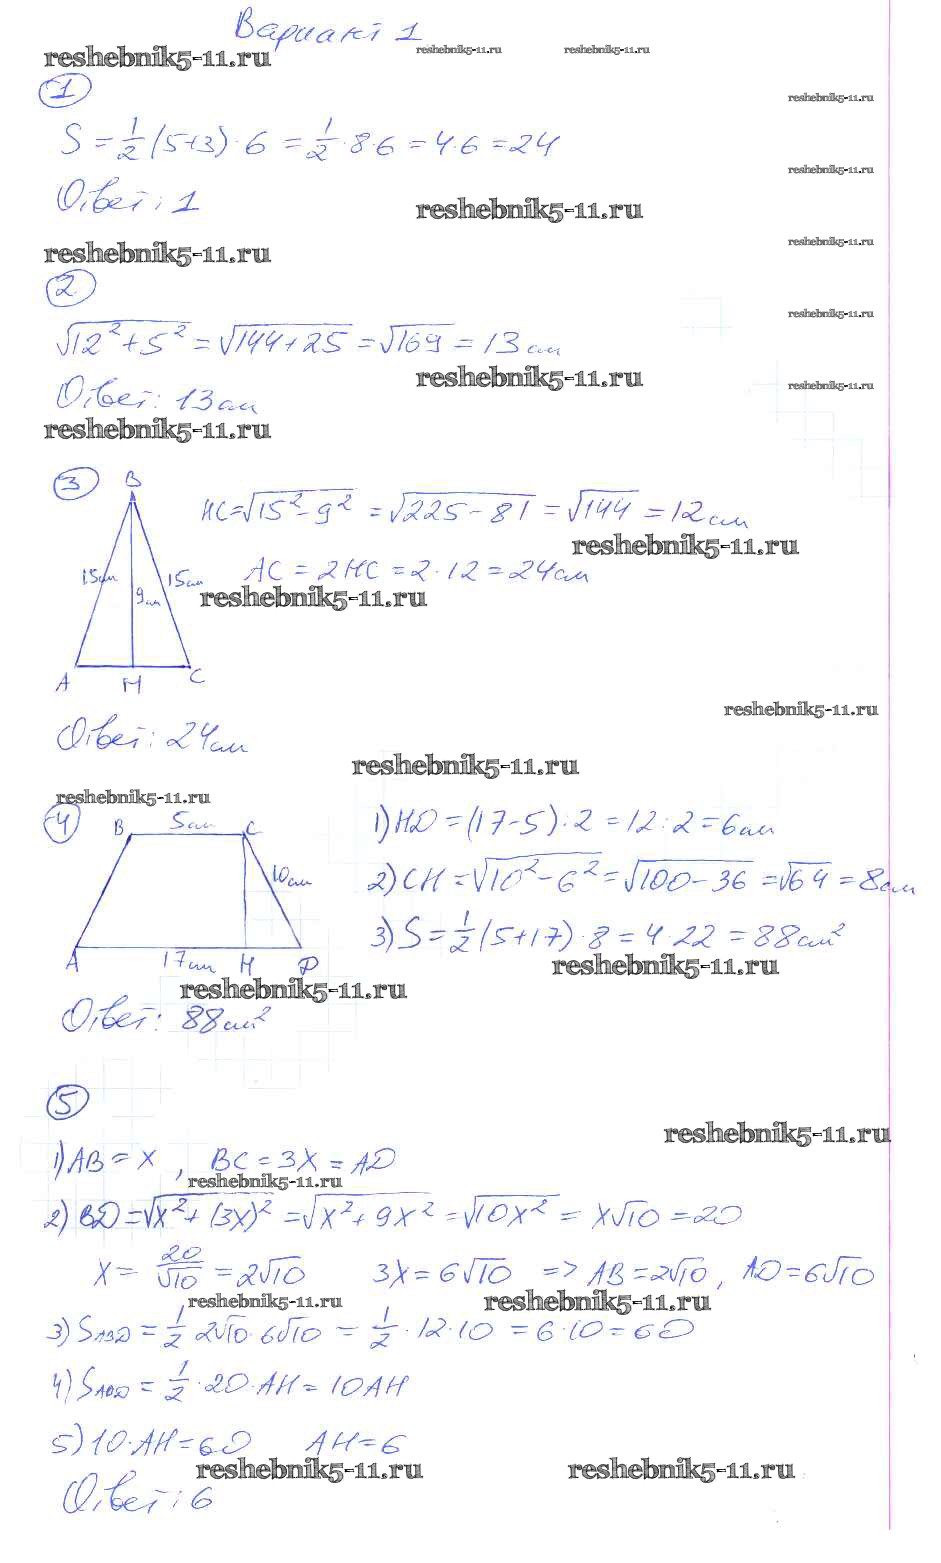 Вариант 1
reshebnik5-11.ru reshebnik5-11.ru reshebnik5-11.ru
1
reshebnik5-11.ru
S = 1/2 (5+3) · 6 = 1/2 · 8 · 6 = 4 · 6 = 24
reshebnik5-11.ru
Ответ: 1
reshebnik5-11.ru
reshebnik5-11.ru reshebnik5-11.ru
2
reshebnik5-11.ru
√12² + 5² = √144+25 = √169 = 13 см
reshebnik5-11.ru reshebnik5-11.ru
Ответ: 13 см
reshebnik5-11.ru
3
B
HC = √15² - 9² = √225 - 81 = √144 = 12 см
reshebnik5-11.ru
AC = 2HC = 2 · 12 = 24 см
15 см 9 см 15 см
reshebnik5-11.ru
A H C
reshebnik5-11.ru
Ответ: 24 см
reshebnik5-11.ru
reshebnik5-11.ru
4
B 5 см C
10 см
A 17 см H D
1) HD = (17-5) : 2 = 12 : 2 = 6 см
2) CH = √10² - 6² = √100 - 36 = √64 = 8 см
3) S = 1/2 (5+17) · 8 = 4 · 22 = 88 см²
reshebnik5-11.ru
reshebnik5-11.ru
Ответ: 88 см²
5
reshebnik5-11.ru
1) AB = x , BC = 3x = AD
reshebnik5-11.ru
2) BD = √x² + (3x)² = √x² + 9x² = √10x² = x√10 = 20
x = 20/√10 = 2√10 3x = 6√10 => AB = 2√10 , AD = 6√10
reshebnik5-11.ru reshebnik5-11.ru
3) S ABD = 1/2 · 2√10 · 6√10 = 1/2 · 12 · 10 = 6 · 10 = 60
4) S ABD = 1/2 · 20 · AH = 10AH
5) 10 · AH = 60 AH = 6
reshebnik5-11.ru reshebnik5-11.ru
Ответ: 6